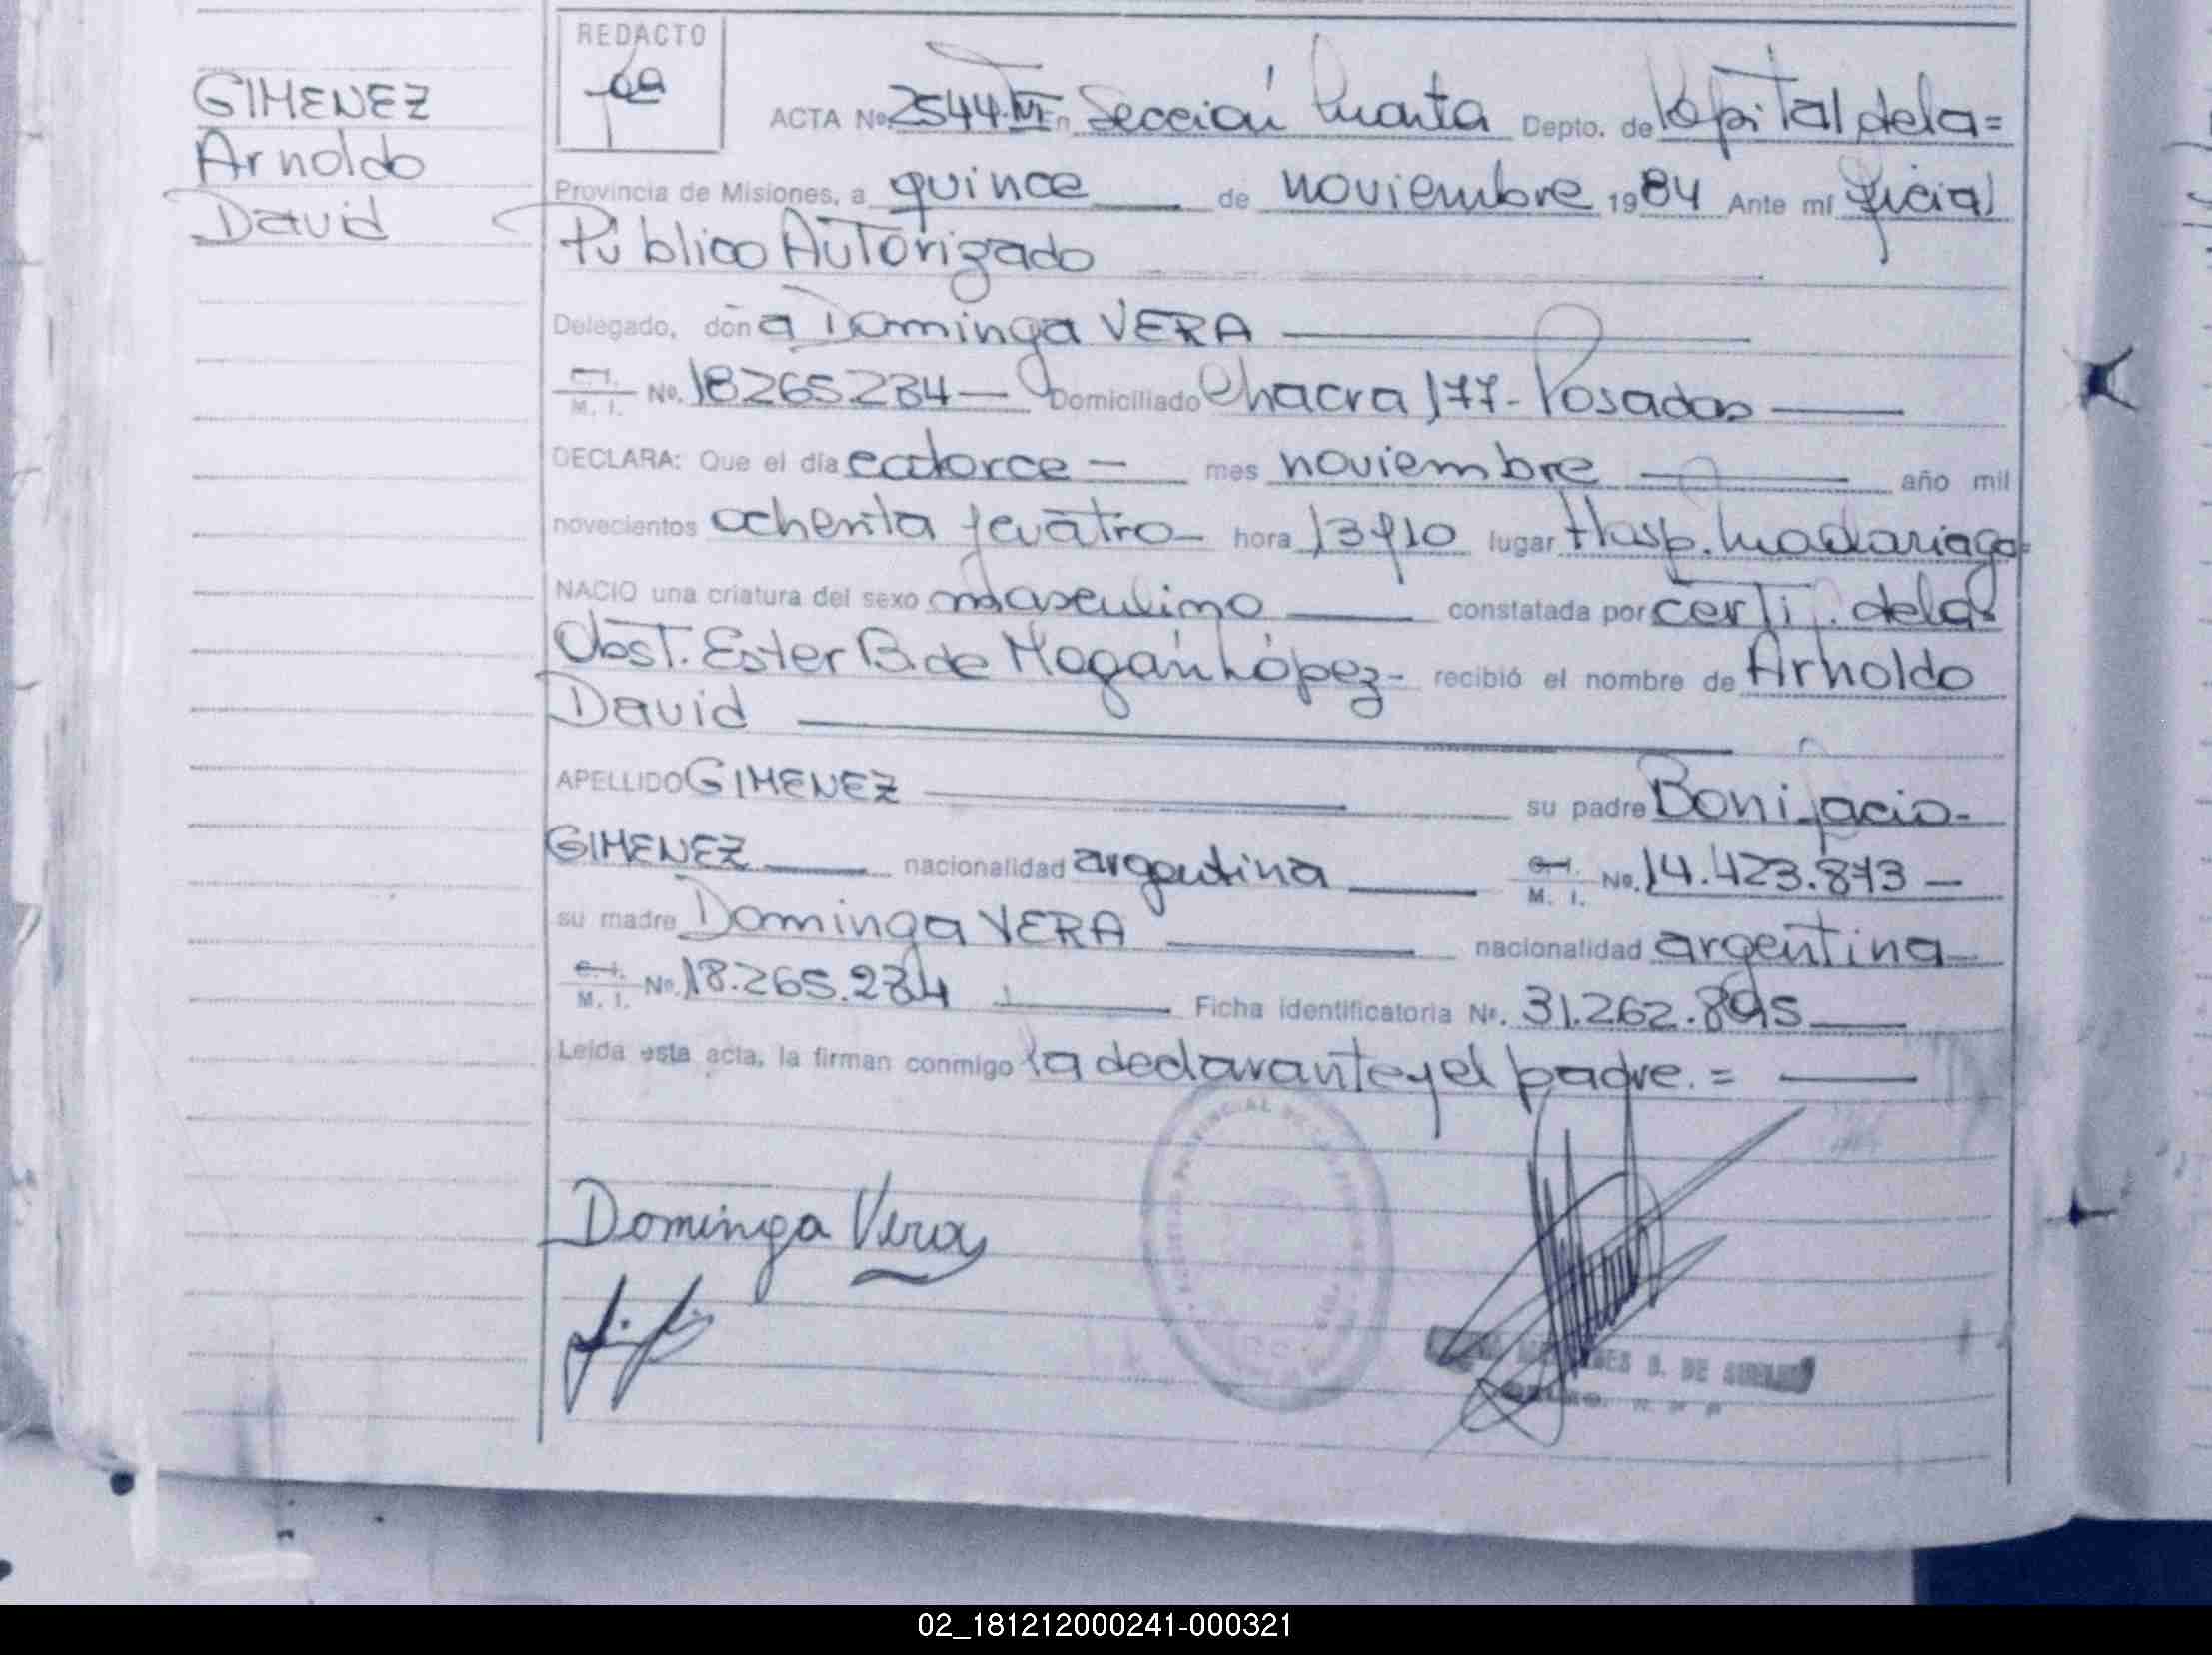 REDACTO
GIMENEZ
Arnoldo
David
ACTA Nº 2544.VI En Sección Cuarta Depto. de Capital de la=
Provincia de Misiones, a quince de noviembre 1984 Ante mí Oficial
Público Autorizado
Delegado, doña Dominga VERA
C.I. M. I. No. 18265234 Domiciliado Chacra 177- Posadas
DECLARA: Que el día catorce mes noviembre año mil
novecientos ochenta y cuatro hora 13y10 lugar Hosp. Madariaga=
NACIO una criatura del sexo masculino constatada por certi. de la
Obst. Ester B. de Mogán López- recibió el nombre de Arnoldo
David
APELLIDO GIMENEZ su padre Bonifacio
GIMENEZ nacionalidad argentina C.I. M. I. No. 14.423.873
su madre Dominga VERA nacionalidad argentina
C.I. M. I. No. 18.265.234 Ficha identificatoria Nº. 31.262.895
Leída esta acta, la firman conmigo la declarante y el padre. =
Dominga Vera
02_181212000241-000321